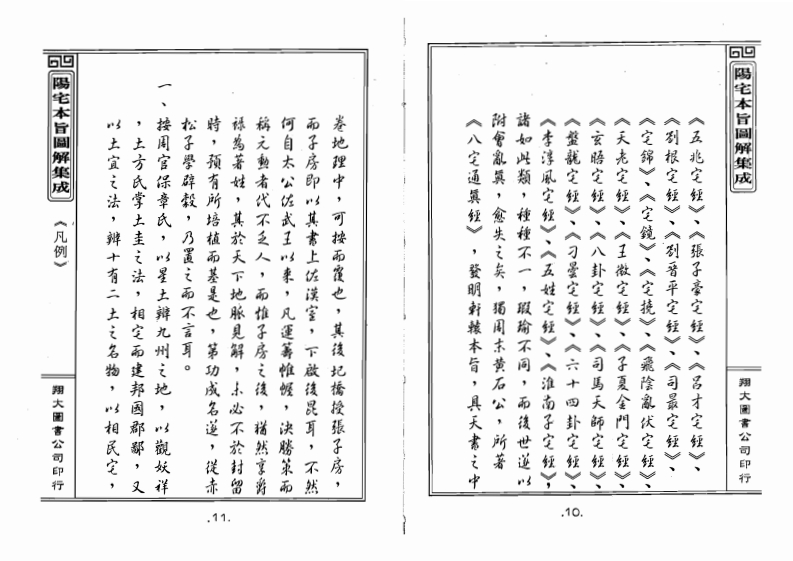 陽宅本旨圖解集成
《五兆宅經》、《張子毫宅經》、《呂才宅經》、
《劉根宅經》、《劉晉平宅經》、《司最宅經》、
《宅錦》、《宅鏡》、《宅撓》、《飛陰亂伏宅經》、
《天老宅經》、《王微宅經》、《子夏金門宅經》、
《玄晤宅經》、《八卦宅經》、《司馬天師宅經》、
《盤龍宅經》、《刁曇宅經》、《六十四卦宅經》、
《李淳風宅經》、《五姓宅經》、《淮南子宅經》,
諸如此類,種種不一,瑕瑜不同,而後世遂以
附會亂真,愈失之矣,獨周末黃石公,所著
《八宅通真經》,發明軒轅本旨,具天書之中
翔大圖書公司印行
.10.
卷地理中,可按而覆也,其後圯橋授張子房,
而子房即以其書上佐漢室,下啟後昆耳,不然
何自太公佐武王以來,凡運籌帷幄,決勝策而
稱元勳者代不乏人,而惟子房之後,猶然享爵
祿為著姓,其於天下地脈見解,未必不於封留
時,預有所培植而基是也,第功成名遂,從赤
松子學辟穀,乃置之而不言耳。
一、按周官保章氏,以星土辨九州之地,以觀妖祥
,土方氏掌土圭之法,相宅而建邦國都鄙,又
以土宜之法,辨十有二土之名物,以相民宅,
陽宅本旨圖解集成
《凡例》
翔大圖書公司印行
.11.